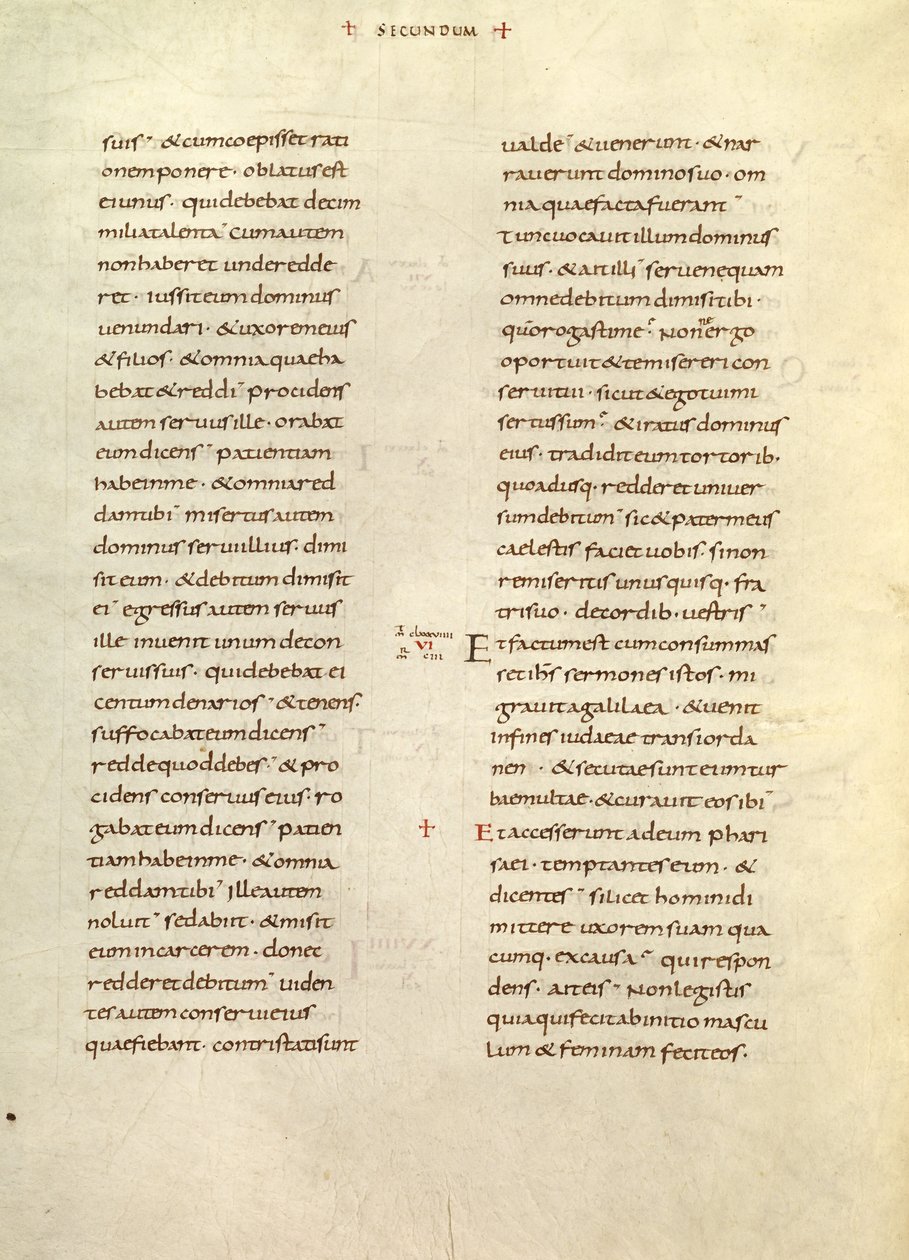 ✝ SECUNDUM ✝
suis, & cum coepisset rati
onem ponere· oblatus est
ei unus· qui debebat decim
milia talenta, cum autem
non haberet unde redde
ret· iussit eum dominus
uenundari· & uxorem eius
& filios· & omnia quae ha
bebat & reddi, procidens
autem seruus ille· orabat
eum dicens, patientiam
habe in me· & omnia red
dam tibi, misertus autem
dominus serui illius· dimi
sit eum· & debitum dimisit
ei, egressus autem seruus
ille inuenit unum de con
seruis suis· qui debebat ei
centum denarios, & tenens·
suffocabat eum dicens,
redde quod debes·, & pro
cidens conseruus eius· ro
gabat eum dicens, patien
tiam habe in me· & omnia
reddam tibi, Ille autem
noluit, sed abiit· & misit
eum in carcerem· donec
redderet debitum, uiden
tes autem conserui eius
quae fiebant· contristati sunt
ualde, & uenerunt· & nar
rauerunt domino suo· om
nia quae facta fuerant,
Tunc uocauit illum dominus
suus· & ait illi, serue nequam
omne debitum dimisi tibi·
quō rogasti me? Non ne ergo
oportuit & te misereri con
serui tui· sicut & ego tui mi
sertus sum? & iratus dominus
eius· tradidit eum tortorib·
quoadusq· redderet uniuer
sum debitum, sic & pater meus
caelestis faciet uobis· si non
remiseritis unusquisq· fra
tri suo· de cordib· uestris,
clxxxviiii
VI
ciii
Et factum est cum consummas
set ihs sermones istos· mi
grauit a galilaea· & uenit
in fines iudaeae trans iorda
nen· & secutae sunt eum tur
bae multae· & curauit eos ibi,
✝ Et accesserunt ad eum phari
saei· temptantes eum· &
dicentes, si licet homini di
mittere uxorem suam qua
cumq· ex causa? qui respon
dens· ait eis, Non legistis
quia qui fecit ab initio mascu
lum & feminam fecit eos·